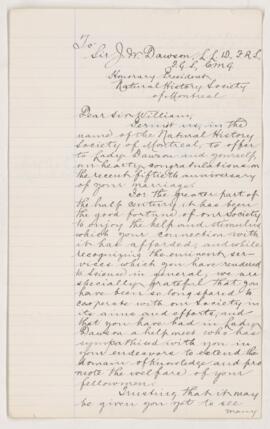 To
Sir J. W. Dawson, L L. D., F. R. S.
F. G. S., C M G
Honorary President
Natural History Society
of Montreal
Dear Sir William,
Permit us, in the
name of the Natural History
Society of Montreal, to offer
to Lady Dawson and yourself
our hearty congratulations on
the recent fiftieth anniversary
of your marriage.
For the greater part of
the half century it has been
the good fortune of our Society
to enjoy the help and stimulus
which your connection with
it has afforded, and while
recognizing the eminent ser-
vices which you have rendered
to Science in general, we are
specially grateful that you
have been so long spared to
cooperate with our Society in
its aims and efforts, and
that you have had in Lady
Dawson a helpmeet who has
sympathised with you in
your endeavors to extend the
domain of knowledge and pro
mote the welfare of your
fellowmen.
Trusting that it may
be given you yet to see
many